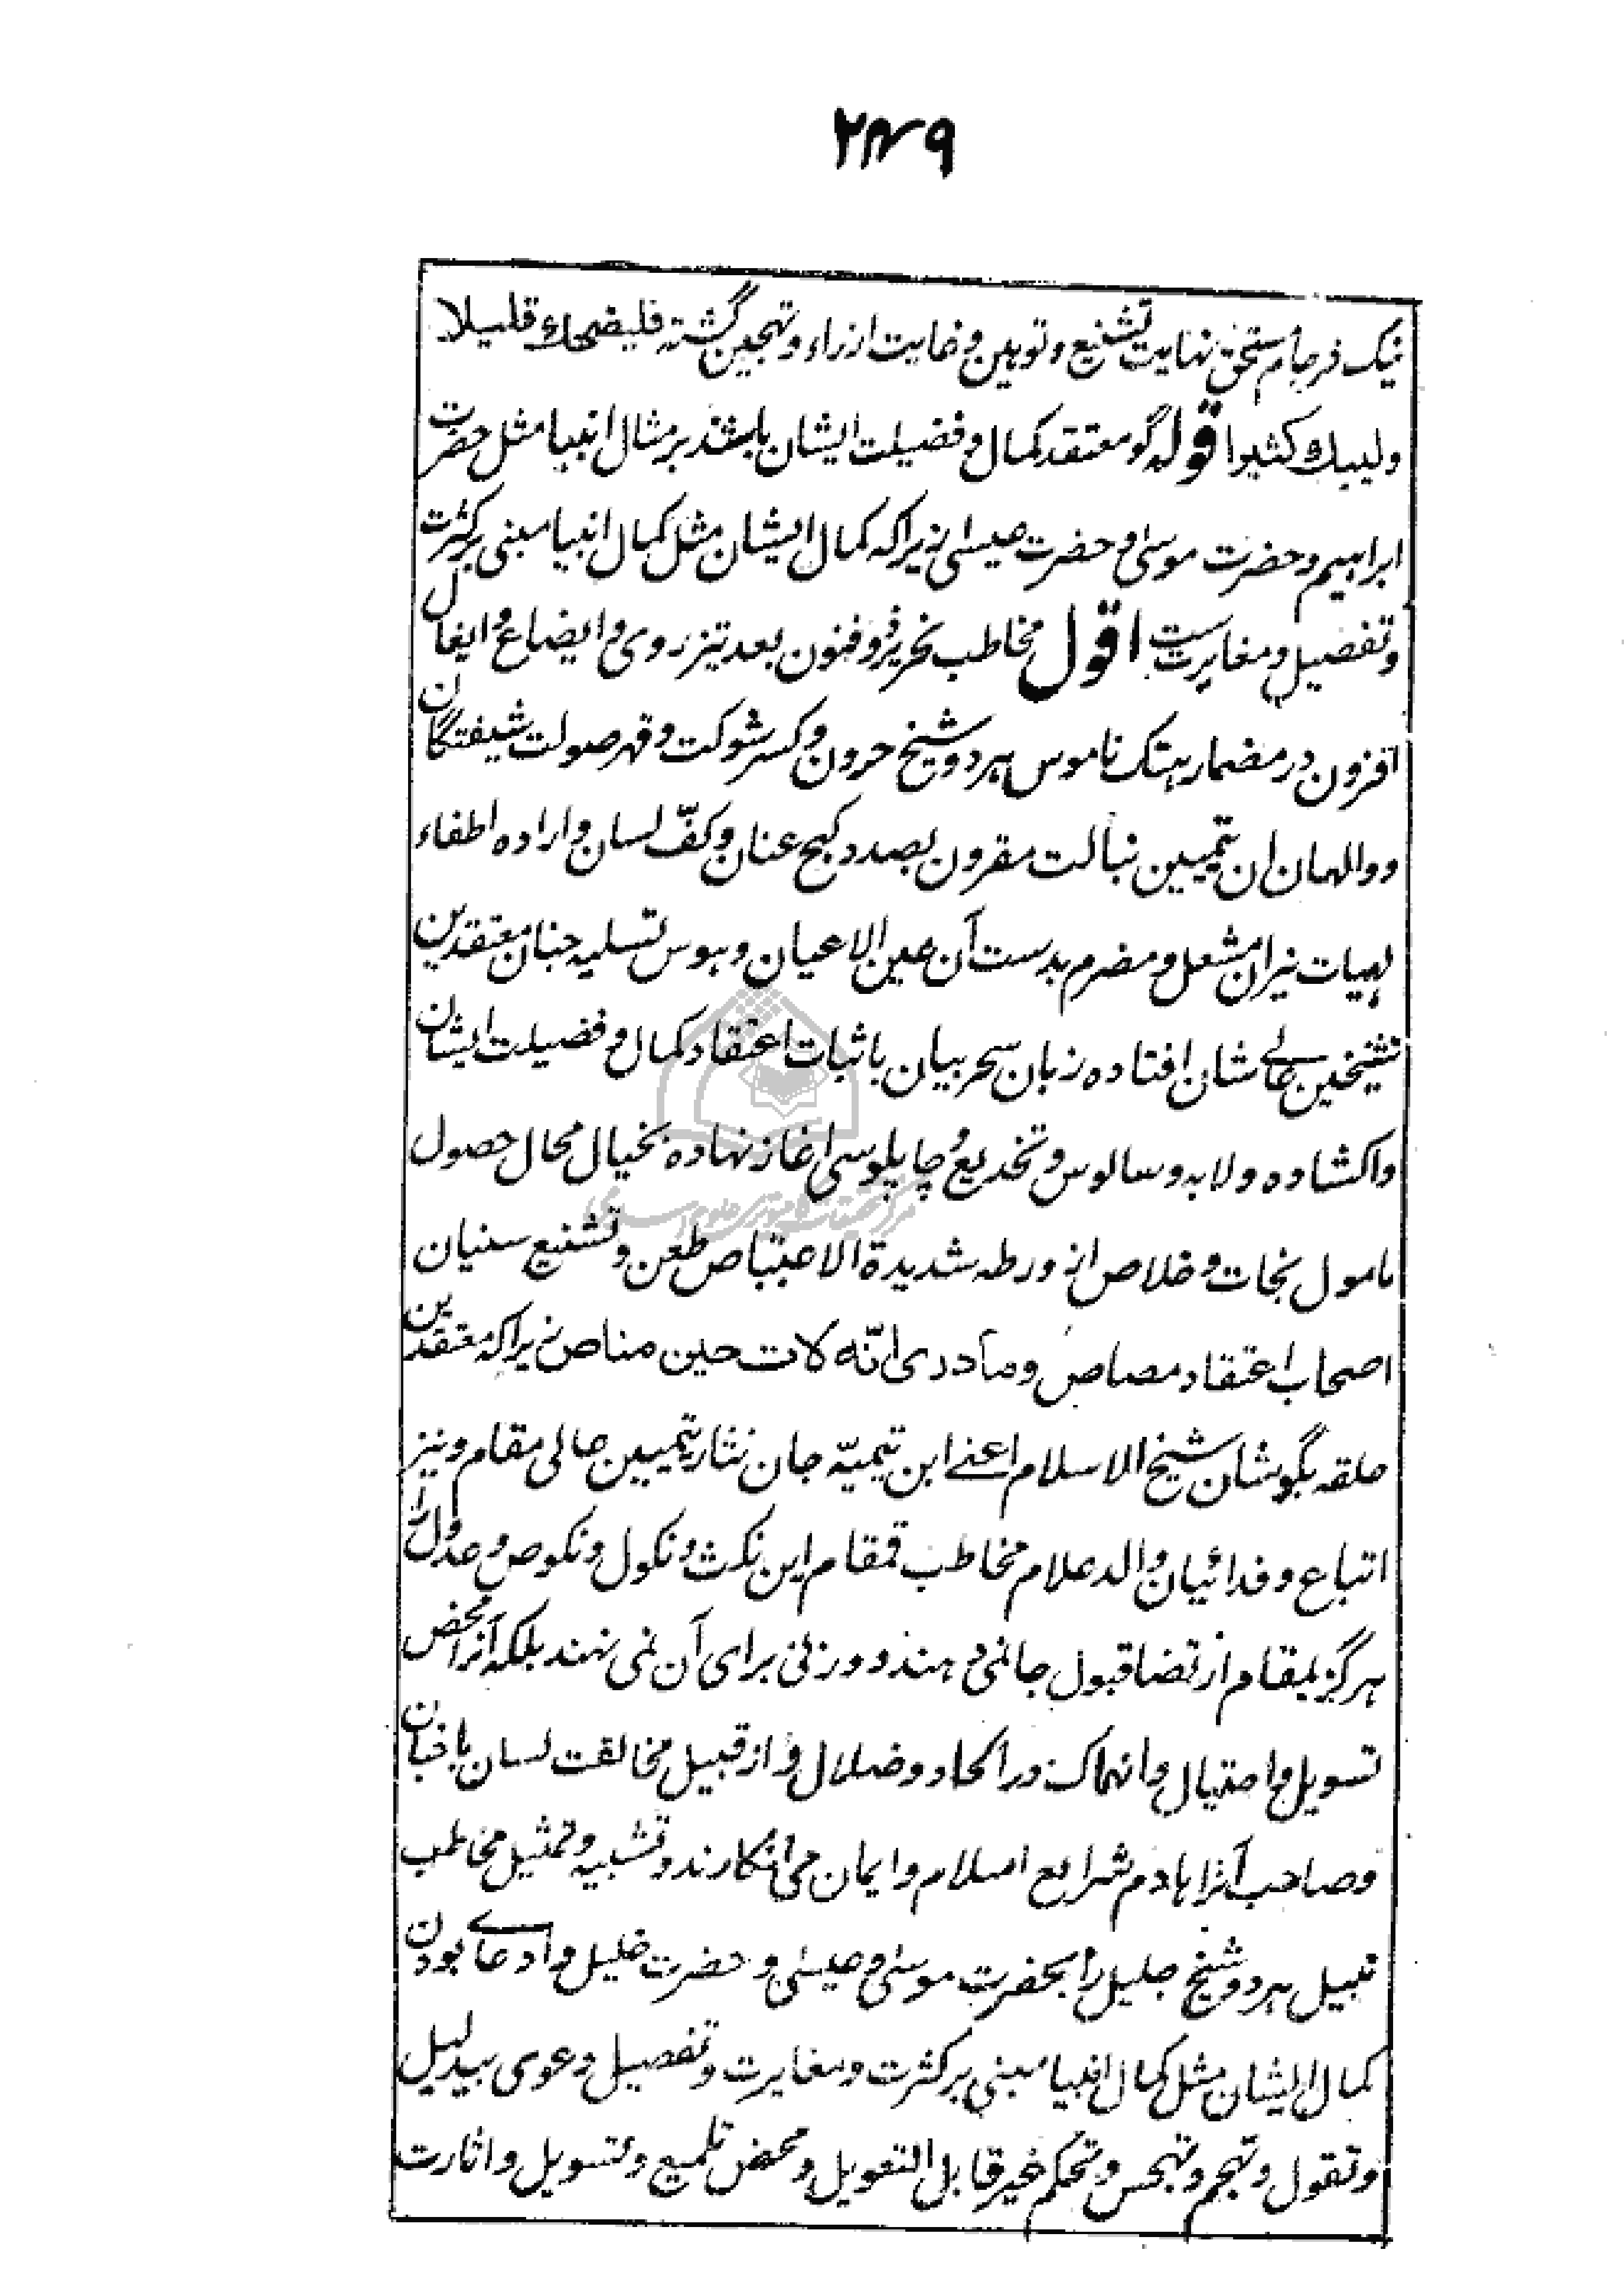 ۲۴۹
نیک فرجام مستحق نهایت تشنیع و توهین و غایت ازراء و تهجین گشته فلیضحك قلیلا
ولیبك کثیرا قوله گو معتقد کمال و فضیلت ایشان باشند بر مثال انبیا مثل حضرت
ابراهیم و حضرت موسی و حضرت عیسی زیراکه کمال ایشان مثل کمال انبیا مبنی بر کثرت
و تفصیل و مغایرت ست اقول مخاطب نحریر ذو فنون بعد تیز روی و ایضاع و ایغال
افزون در مضمار هتک ناموس هر دو شیخ حرون و کسر شوکت و قهر صولت شیفتگان
و والهان ان تیمیین نبالت مقرون بصدد کبح عنان و کفّ لسان و اراده اطفاء
لهبات نیران مشعل و مضرم بدست آن عین الاعیان و هوس تسلیه جنان معتقدین
شیخین عالے شان افتاده زبان سحر بیان باثبات اعتقاد کمال و فضیلت ایشان
واکشاده و لابه و سالوس و تخدیع و چاپلوسی اغاز نهاده بخیال محال حصول
مامول نجات و خلاص از ورطه شدیدة الاعتیاص طعن و تشنیع سنیان
اصحاب اعتقاد مصاص و ما دری انّه لات حین مناص زیراکه معتقدین
حلقه بگوشان شیخ الاسلام اعنے ابن تیمیّه جان نثار تیمیین عالی مقام و نیز
اتباع و فدائیان والد علام مخاطب قمقام این نکث و نکول و نکوص و عدول را
هرگز بمقام ارتضا قبول جا نمی دهند و وزنی برای آن نمی نهند بلکه آنرا محض
تسویل و احتیال و انهماک در الحاد و ضلال و از قبیل مخالفت لسان با جنان
و صاحب آنرا هادم شرایع اسلام و ایمان می انگارند و تشبیه و تمثیل مخاطب
نبیل هر دو شیخ جلیل را بحضرت موسی و عیسی و حضرت خلیل و ادعاے بودن
کمال ایشان مثل کمال انبیا مبنی بر کثرت و مغایرت و تفصیل دعوی بیدلیل
و تقول و تهجم و تهجس و تحکم غیر قابل التعویل و محض تلمیع و تسویل و اثارت